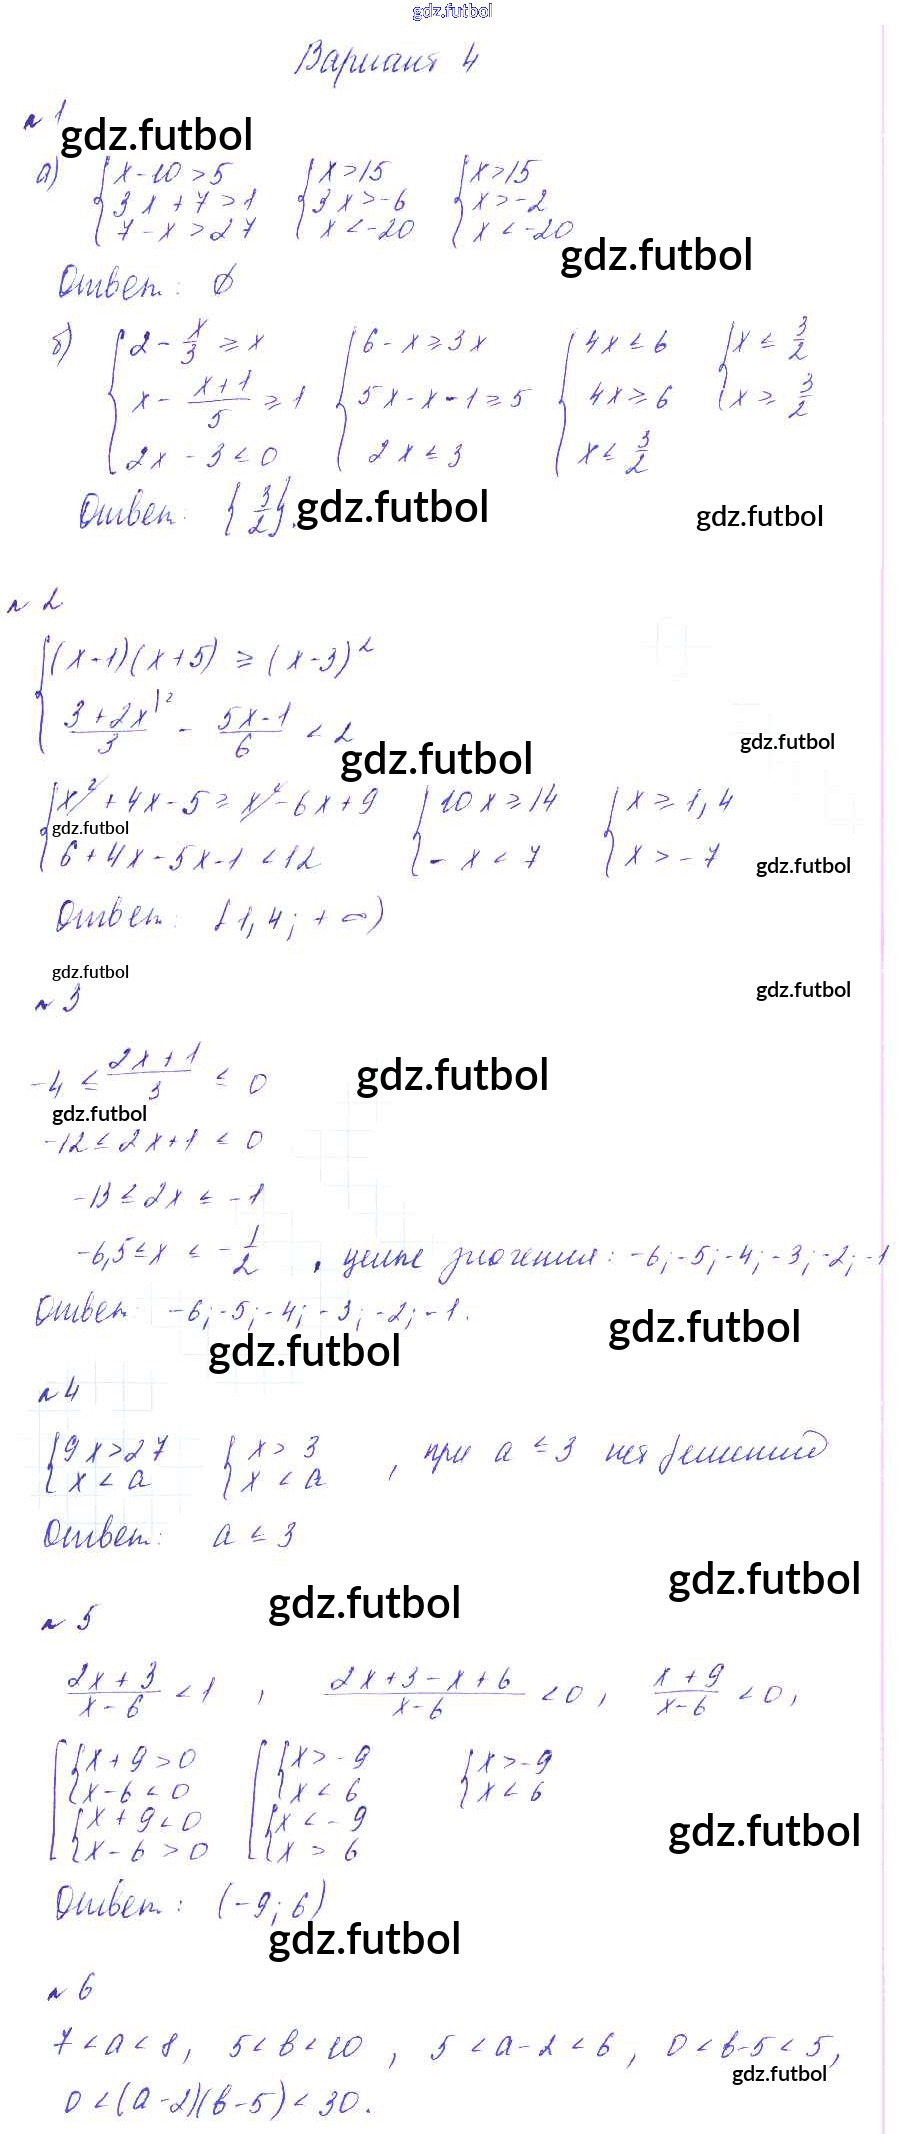 gdz.futbol
Вариант 4
№ 1
gdz.futbol
а) { x - 10 > 5   { x > 15   { x > 15
3x + 7 > 1   3x > -6   x > -2
7 - x > 27   x < -20   x < -20
gdz.futbol
Ответ: ∅
б) { 2 - x/3 ≥ x   { 6 - x ≥ 3x   { 4x ≤ 6   { x ≤ 3/2
x - (x+1)/5 ≥ 1   5x - x - 1 ≥ 5   4x ≥ 6   x ≥ 3/2
2x - 3 ≤ 0   2x ≤ 3   x ≤ 3/2
Ответ: {3/2}.
gdz.futbol gdz.futbol
№ 2
{ (x-1)(x+5) ≥ (x-3)²
(3+2x)/3 |² - (5x-1)/6 < 2
gdz.futbol gdz.futbol
{ x² + 4x - 5 ≥ x² - 6x + 9   { 10x ≥ 14   { x ≥ 1,4
gdz.futbol
6 + 4x - 5x - 1 < 12   - x < 7   x > -7
gdz.futbol
Ответ: [1,4; +∞)
gdz.futbol gdz.futbol
№ 3
-4 ≤ (2x+1)/3 ≤ 0
gdz.futbol
gdz.futbol
-12 ≤ 2x+1 ≤ 0
-13 ≤ 2x ≤ -1
-6,5 ≤ x ≤ -1/2 , целые значения: -6; -5; -4; -3; -2; -1
Ответ: -6; -5; -4; -3; -2; -1.
gdz.futbol gdz.futbol
№ 4
{ 9x > 27   { x > 3 , при a ≤ 3 нет решений
x < a   x < a
Ответ: a ≤ 3
gdz.futbol gdz.futbol
№ 5
(2x+3)/(x-6) < 1 , (2x+3-x+6)/(x-6) < 0 , (x+9)/(x-6) < 0 ,
[ { x + 9 > 0   [ { x > -9   { x > -9
x - 6 < 0   x < 6   x < 6
{ x + 9 < 0   { x < -9
x - 6 > 0   x > 6
gdz.futbol
Ответ: (-9; 6)
gdz.futbol
№ 6
7 < a < 8, 5 < b < 10 , 5 < a-2 < 6 , 0 < b-5 < 5,
gdz.futbol
0 < (a-2)(b-5) < 30.